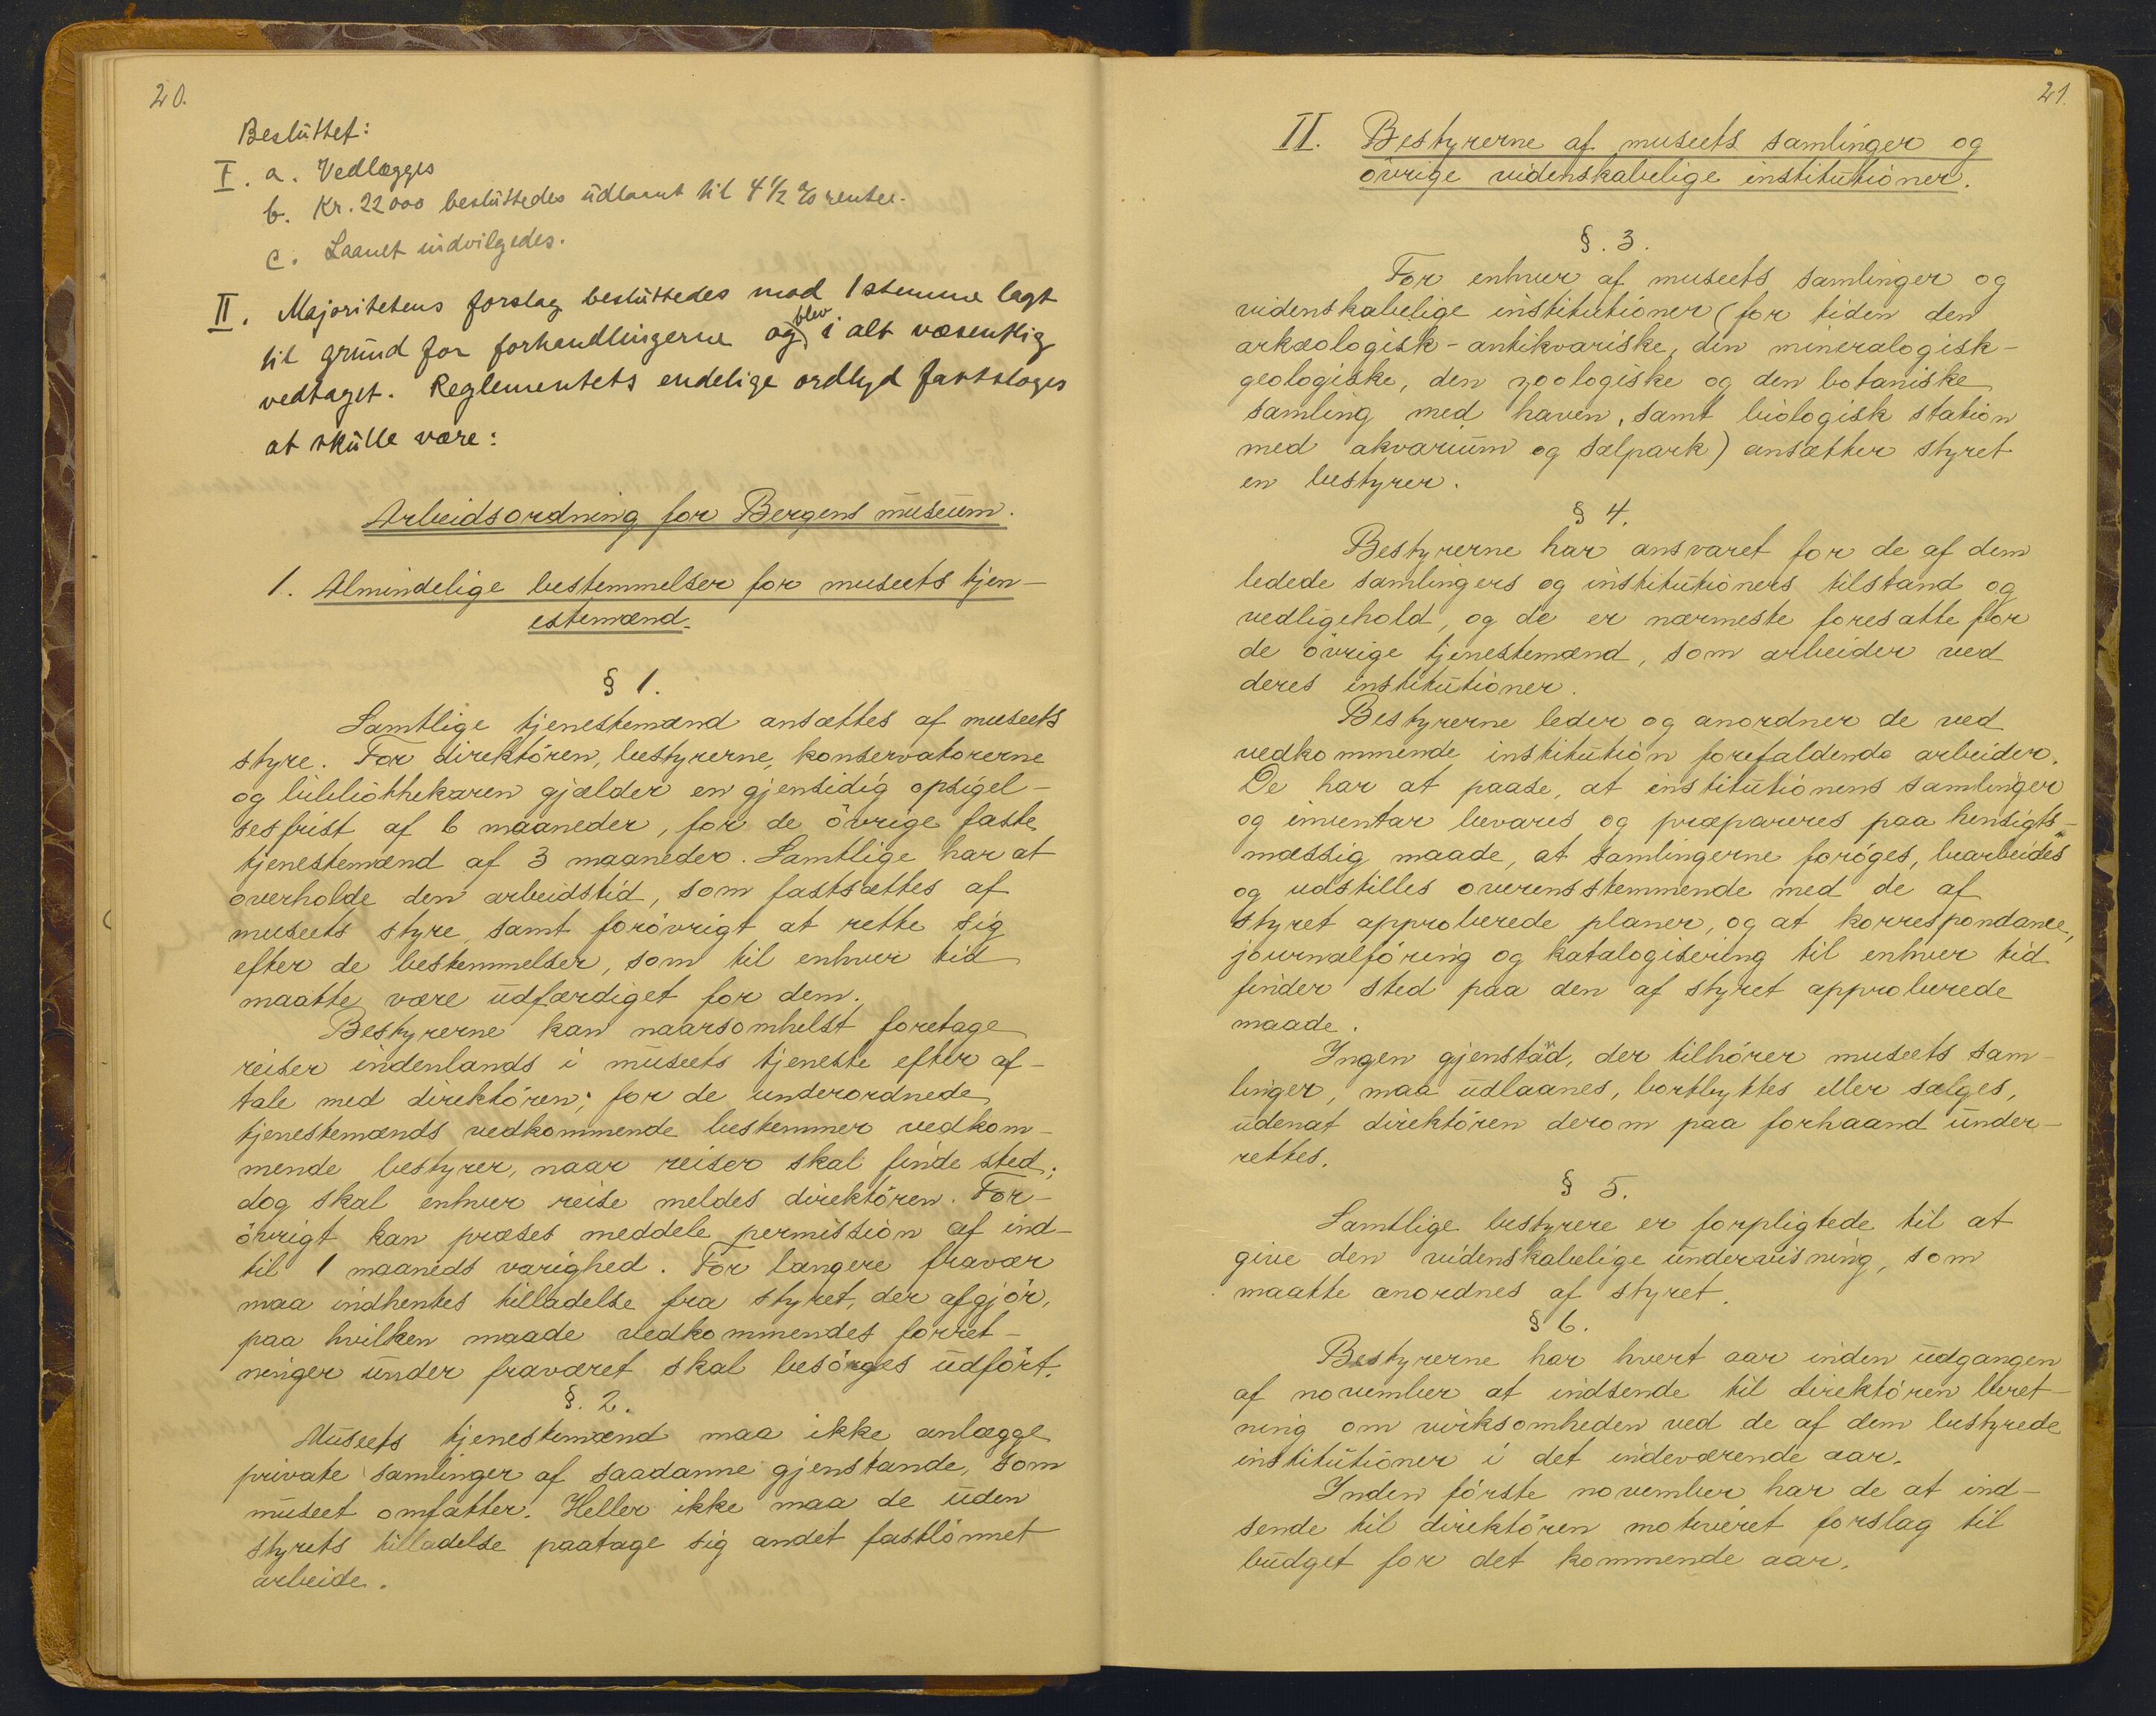 20.
Besluttet:
I. a. Vedlægges
b. Kr. 22000 besluttedes udlaant til 4 1/2 % rente.
c. Laanet indvilgedes.
II. Majoritetens forslag besluttedes mod 1 stemme lagt
til grund for forhandlingerne og blev i alt væsentlig
vedtaget. Reglementets endelige ordlyd fastsloges
at skulle være:
Arbeidsordning for Bergens museum.
1. Almindelige bestemmelser for museets tjen-
estemænd.
§ 1.
Samtlige tjenestemænd ansættes af museets
styre. For direktören, bestyrerne, konservatorerne
og bibliothekaren gjælder en gjensidig opsigel-
sesfrist af 6 maaneder, for de övrige faste
tjenestemænd af 3 maaneder. Samtlige har at
overholde den arbeidstid, som fastsættes af
museets styre, samt forövrigt at rette sig
efter de bestemmelser, som til enhver tid
maatte være udfærdiget for dem.
Bestyrerne kan naarsomhelst foretage
reiser indenlands i museets tjeneste efter af-
tale med direktören; for de underordnede
tjenestemænds vedkommende bestemmer vedkom-
mende bestyrer, naar reiser skal finde sted;
dog skal enhver reise meldes direktören. For-
övrigt kan præses meddele permission af ind-
til 1 maaneds varighed. For længere fravær
maa indhentes tilladelse fra styret, der afgjör,
paa hvilken maade vedkommendes forret-
ninger under fraværet skal besörges udfört.
§. 2.
Museets tjenestemænd maa ikke anlægge
private samlinger af saadanne gjenstande, som
museet omfatter. Heller ikke maa de uden
styrets tilladelse paatage sig andet fastlönnet
arbeide.
21.
II. Bestyrerne af museets samlinger og
övrige videnskabelige institutioner.
§. 3.
For enhver af museets samlinger og
videnskabelige institutioner (for tiden den
arkæologisk-antikvariske, den mineralogisk-
geologiske, den zoologiske og den botaniske
samling med haven, samt biologisk station
med akvarium og sælpark) ansætter styret
en bestyrer.
§ 4.
Bestyrerne har ansvaret for de af dem
ledede samlingers og institutioners tilstand og
vedligehold, og de er nærmeste foresatte for
de övrige tjenestemænd, som arbeider ved
deres institutioner.
Bestyrerne leder og anordner de ved
vedkommende institution forefaldende arbeider.
De har at paase, at institutionens samlinger
og inventar bevares og præpareres paa hensigts-
mæssig maade, at samlingerne foröges, bearbeides
og udstilles overensstemmende med de af
styret approberede planer, og at korrespondance,
journalföring og katalogisering til enhver tid
finder sted paa den af styret approberede
maade.
Ingen gjenstad, der tilhörer museets sam-
linger, maa udlaanes, bortbyttes eller sælges,
udenat direktören derom paa forhaand under-
rettes.
§ 5.
Samtlige bestyrere er forpligtede til at
give den videnskabelige undervisning, som
maatte anordnes af styret.
§ 6.
Bestyrerne har hvert aar inden udgangen
af november at indsende til direktören beret-
ning om virksomheden ved de af dem bestyrede
institutioner i det indeværende aar.
Inden förste november har de at ind-
sende til direktören motiveret forslag til
budget for det kommende aar.